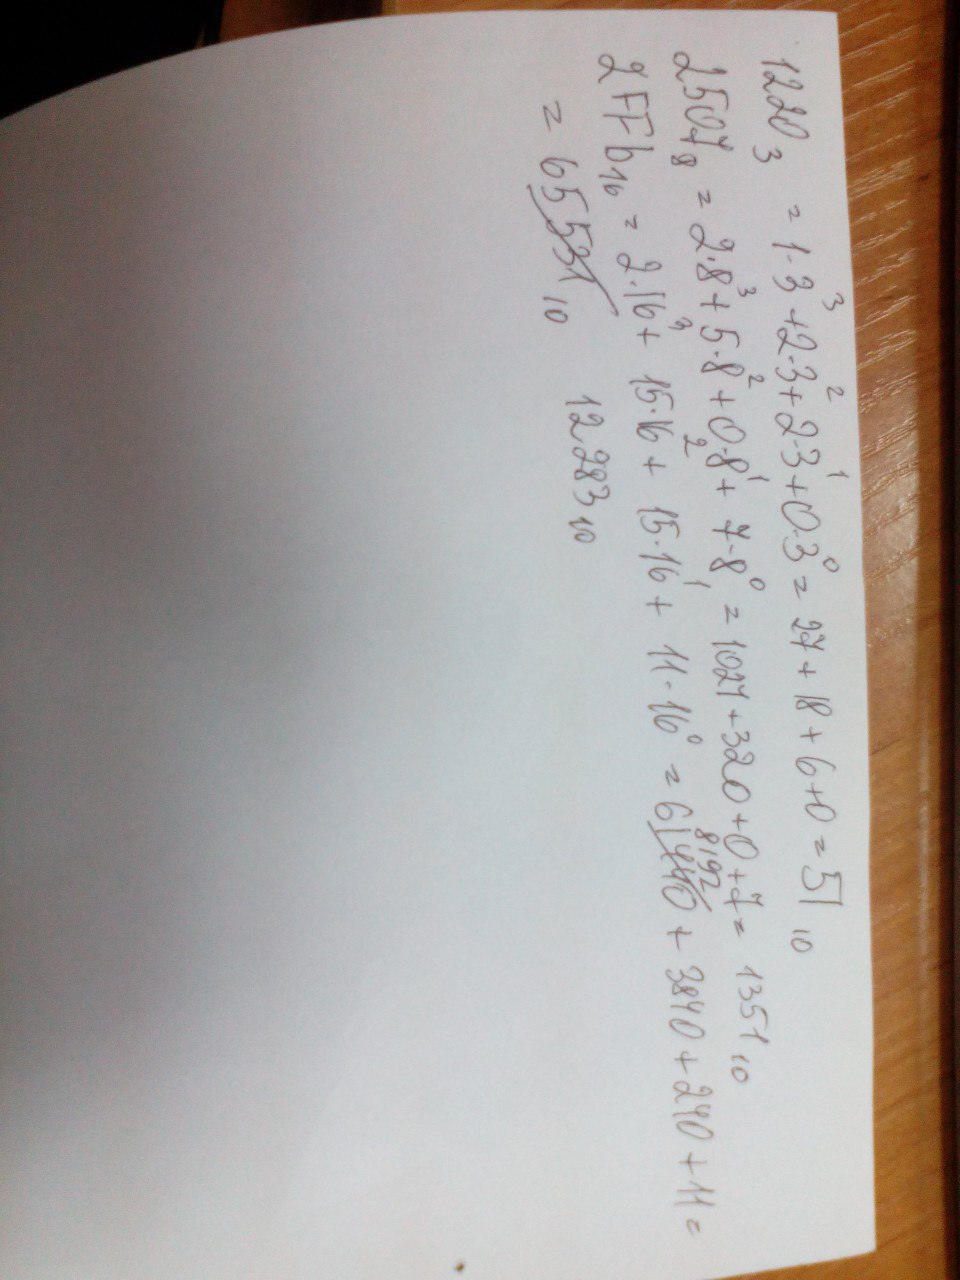 1220₃ = 1·3³+2·3²+2·3¹+0·3⁰ = 27+18+6+0 = 51₁₀
2507₈ = 2·8³+5·8²+0·8¹+7·8⁰ = 1027+320+0+7 = 1351₁₀
2FFb₁₆ = 2·16³+15·16²+15·16¹+11·16⁰ = 61440 8192 + 3840 + 240 + 11 =
= 65531₁₀ 12283₁₀